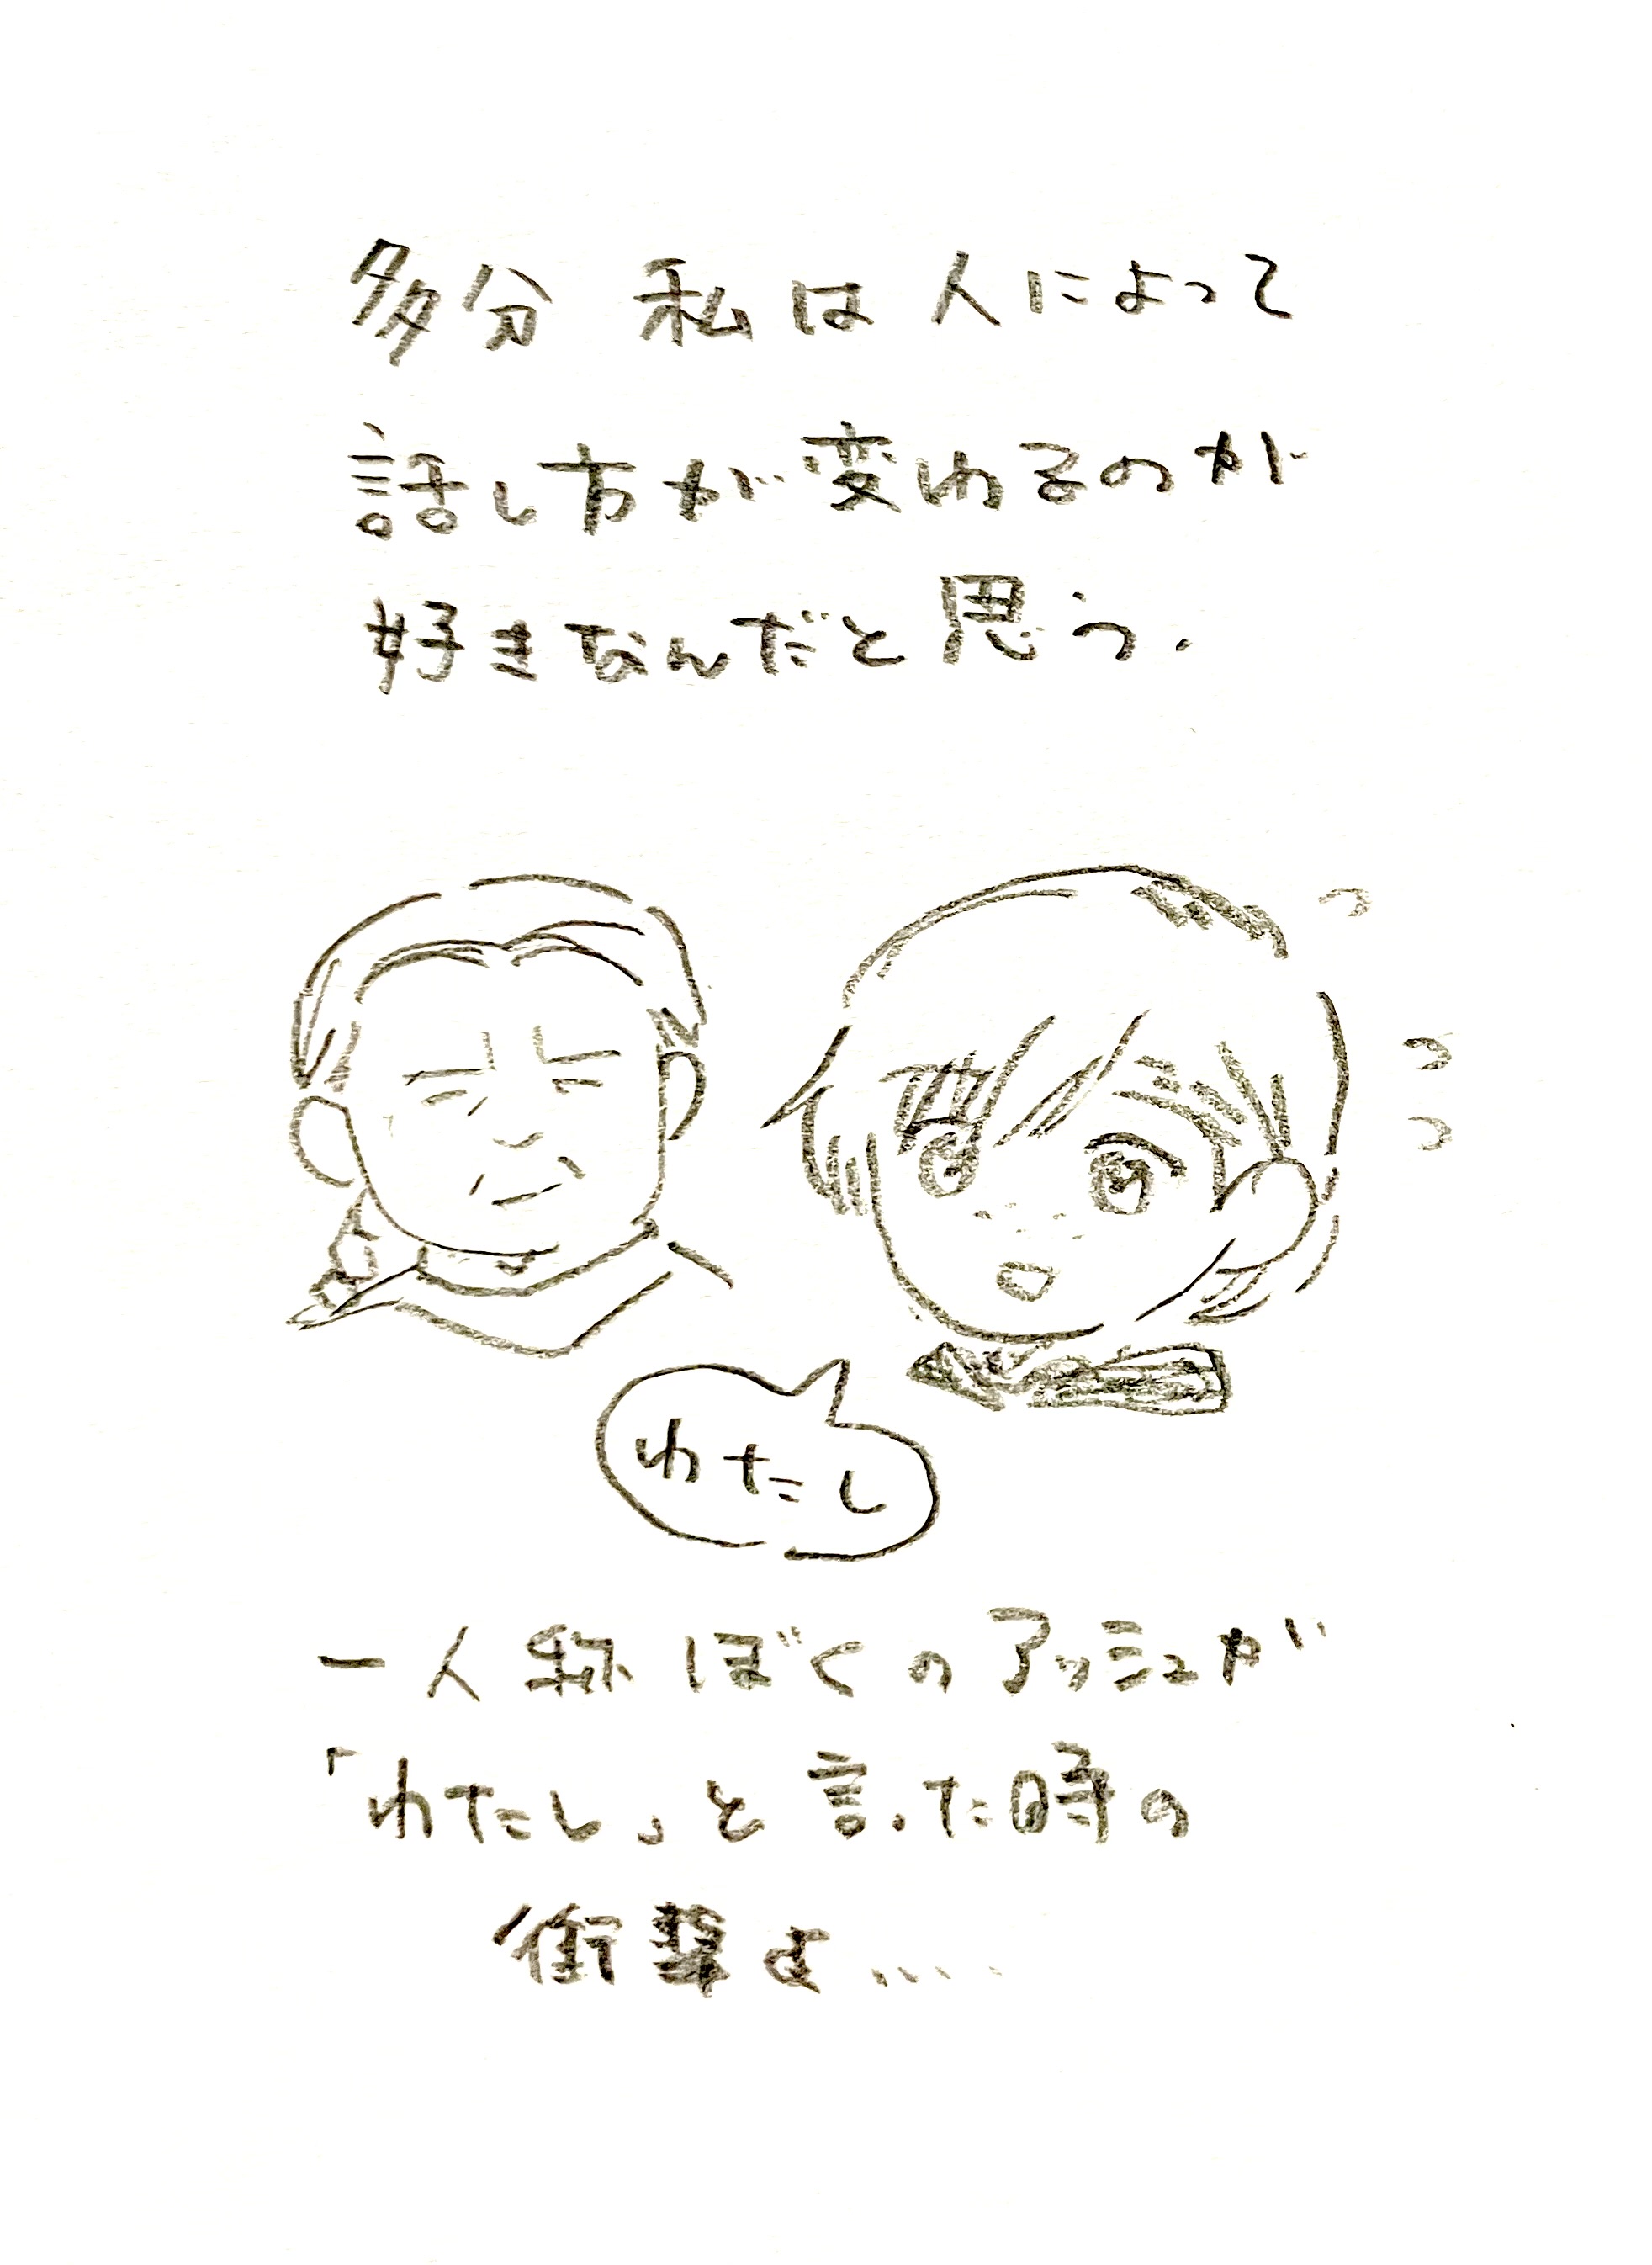 多分 私は 人によって
話し方が変わるのが
好きなんだと思う.
わたし
一人称ぼくのアッシュが
「わたし」と言った時の
衝撃よ.....